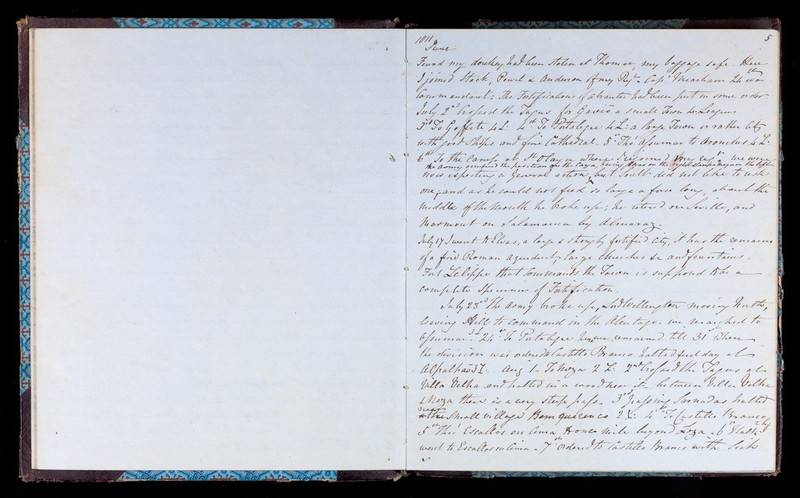 1811
June
5
Found my donkey had been stolen at Thomar, my baggage safe. Here
I joined Stock, Powel & Anderson of my Regt. Capt. Meacham 24th was
Commandant: the Fortifications of Abrantes had been put in some order.
July 2nd Crossed the Tagus for Gavio a small Town 4 Leagues
3rd To Gaffete 4L. 4th To Portalegre 4L: a large Town or rather City
with good Shops and fine Cathedral. 5th Thro' Assumar to Aronches 4 L.
6th To the Camp at St Olaya where I rejoined my Regt. we were
the army occupied the position of the Caya, having on the right and on the left
now expecting a General action, but Soult did not like to risk
one, and as he could not feed so large a force long, about the
middle of the Month he broke up; he retired on Seville, and
Marmont on Salamanca by Almaraz.
July 17 I went to Elvas, a large & strongly fortified City, it has the remains
of a fine Roman aqueduct, large churches &c and fountains.
Fort Le Lippe that commands the Town is supposed to be a
complete Specimen of Fortification.
July 23rd The army broke up, Ld Wellington moving North,
leaving Hill to command in the Alentejo. we marched to
Assumar. 24th To Portalegre remained till 31st when
the division was ordered to Castello Branco halted first day at
Alpalhao 3L. Aug 1. To Neza 2 L. 2nd Crossed the Tagus at
Villa Velha and halted in a wood near it. between Villa Velha
& Neza there is a very steep pass. 3rd passing Sarnadas halted
near
a the small village Bemquerenca 2L. 4th To Castello Branco
5th Thro' Escallos en Cima to one Mile beyond Loza. 6th Halted
went to Escallos en Cima. 7th ordered to Castello Branco with Sick